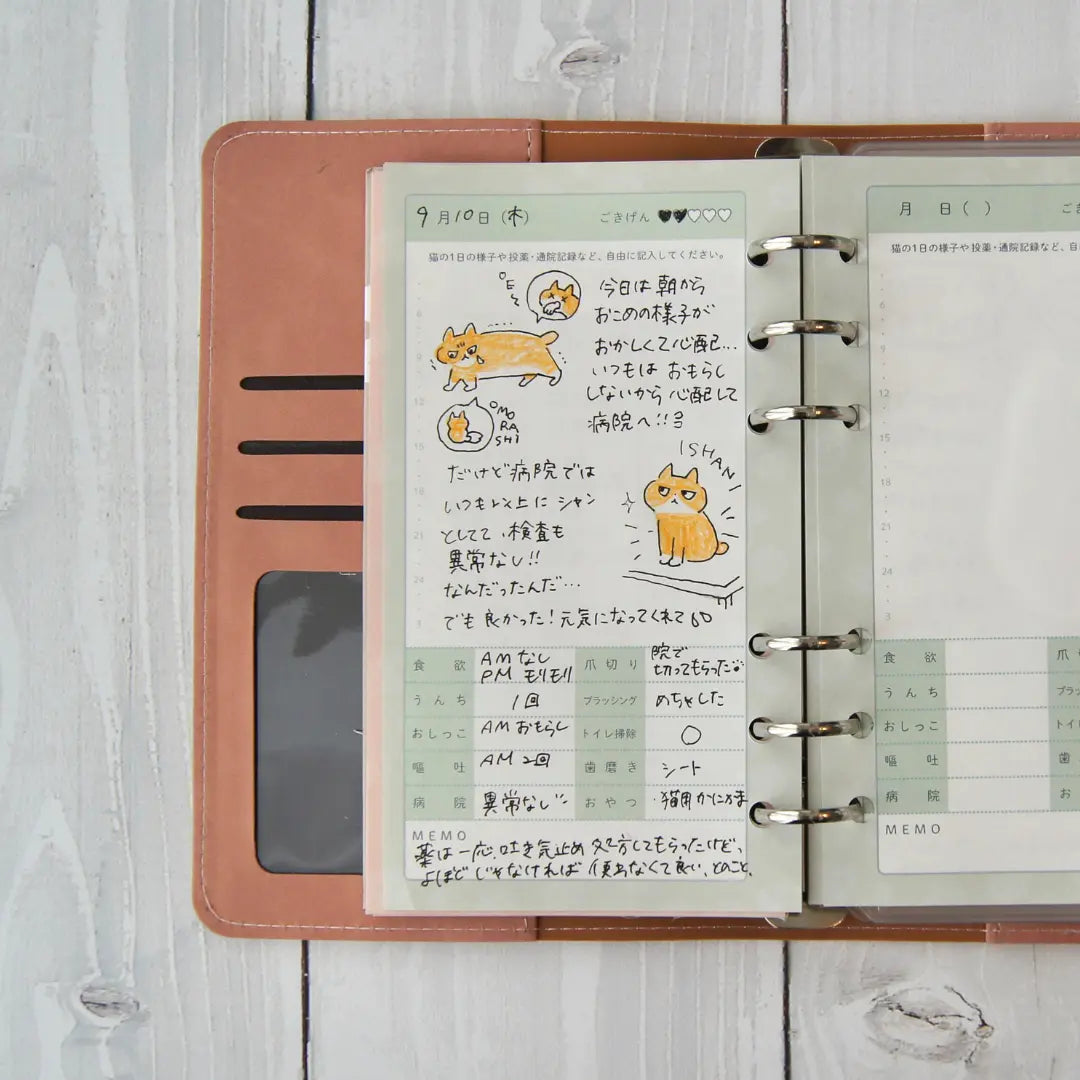 9月10日(木) ごきげん
猫の1日の様子や投薬・通院記録など、自由に記入してください。
今日は朝から
おこめの様子が
おかしくて心配...
いつもは おもらし
しないから 心配して
病院へ!!
OE
OMO
RA
SHI
だけど病院では
いつも以上に シャン
としてて、検査も
異常なし!!
なんだったんだ…
でも良かった!元気になってくれて
ISHAN!
6
9
12
15
18
21
24
3
食欲 AMなし
PM モリモリ
爪切り 院で
切ってもらった
うんち 1回
ブラッシング めちゃした
おしっこ AMおもらし
トイレ掃除 ○
嘔吐 AM 2回
歯磨き シート
病院 異常なし
おやつ ・猫用かにかま
MEMO
薬は一応、吐き気止め 処方してもらったけど、
よほど じゃなければ 使わなくて良い、とのこと。
月 日( ) ごき
猫の1日の様子や投薬・通院記録など、自
6
9
12
15
18
21
24
3
食欲 爪
うんち ブラッ
おしっこ トイ
嘔吐 歯
病院 お
MEMO